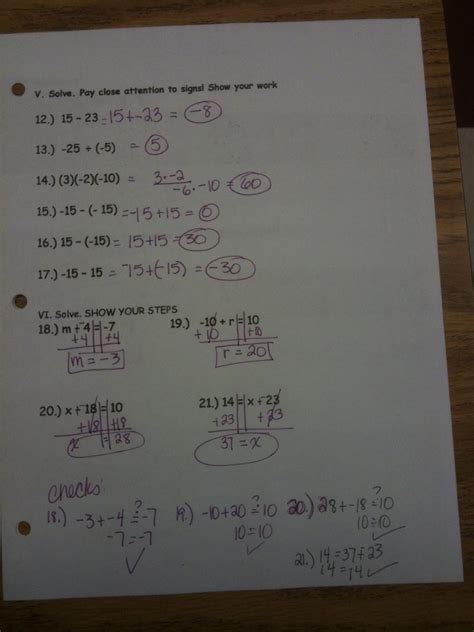 V. Solve. Pay close attention to signs! Show your work
12.) 15 - 23 = 15+-23 = -8
13.) -25 ÷ (-5) = 5
14.) (3)(-2)(-10) = 3·-2
-6·-10 = 60
15.) -15 - (- 15) = -15+15 = 0
16.) 15 - (-15) = 15+15 = 30
17.) -15 - 15 = -15+(-15) = -30
VI. Solve. SHOW YOUR STEPS
18.) m + -4 = -7 19.) -10 + r = 10
+4 +4 +10 +10
m = -3 r = 20
20.) x + -18 = 10 21.) 14 = x + -23
+18 +18 +23 +23
x = 28 37 = x
checks:
18.) -3+-4 ≟ -7 19.) -10+20 ≟ 10 20.) 28+-18 ≟ 10
-7=-7 10=10 10=10
✓ ✓ 21.) 14=37+23
14=14 ✓